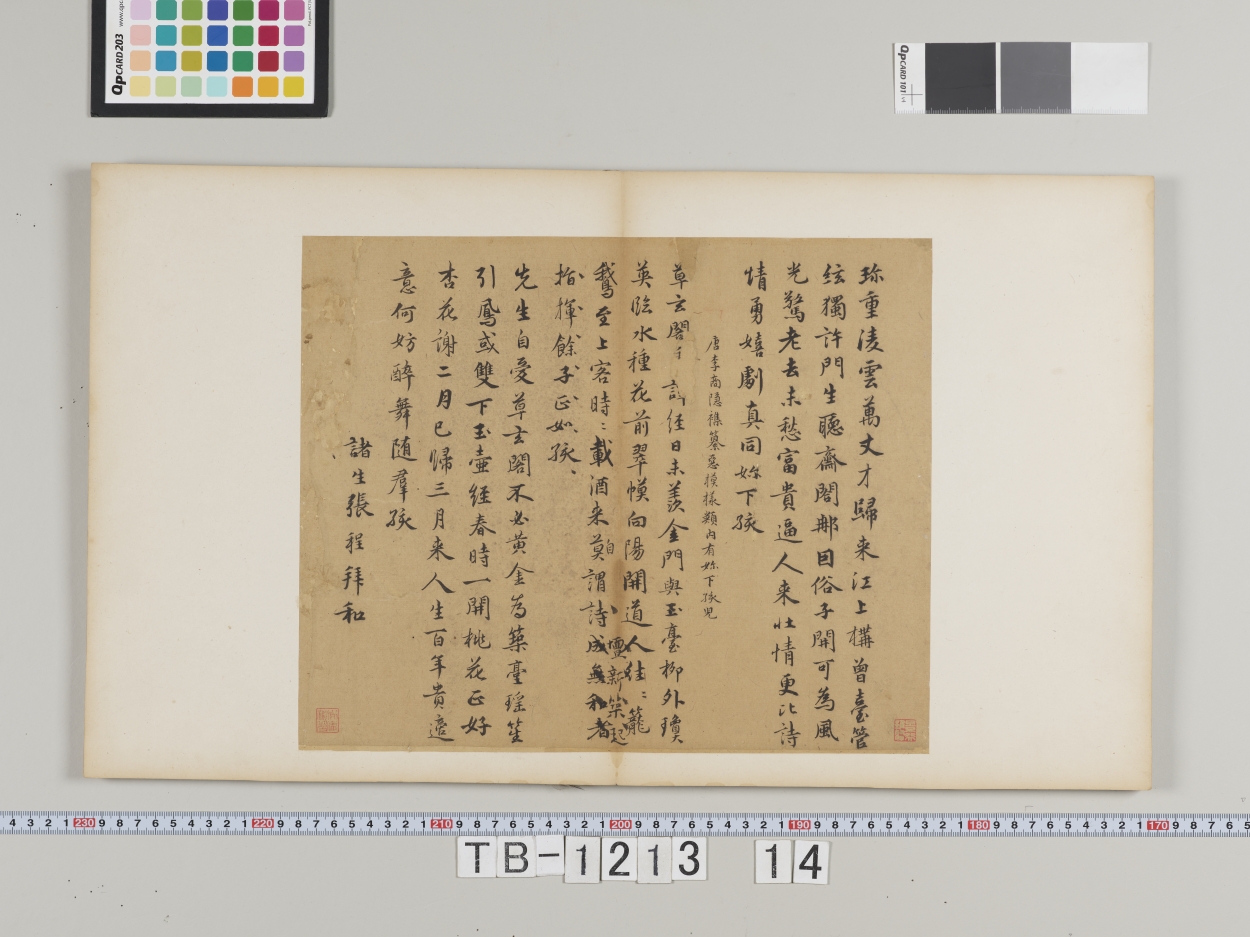 珎重淩雲萬丈才歸来江上構曾臺管
絃獨許門生聽齋閣那回俗子開可為風
光驚老去未愁富貴逼人来壮情更比詩
情勇嬉劇真同妳下孩
唐李商隱襍纂惡模樣類内有妳下孩児
草玄閣子 談經日未羨金門與玉臺柳外瓊
英臨水種花前翠幙向陽開道人往〻籠
鵝至上客時〻載酒来莫謂詩
壇新築起
自
成無和者
指揮餘子正如孩
先生自愛草玄閣不必黄金為築臺瑶笙
引鳳或雙下玉壷經春時一開桃花正好
杏花謝二月已歸三月来人生百年貴適
意何妨醉舞随羣孩
諸生張程拜和
QPCARD 203
www.qp
QPCARD 101
4 3 2 1 230 9 8 7 6 5 4 3 2 1 220 9 8 7 6 5 4 3 2 1 210 9 8 7 6 5 4 3 2 1 200 9 8 7 6 5 4 3 2 1 190 9 8 7 6 5 4 3 2 1 180 9 8 7 6 5 4 3 2 1 170 9 8 7 6 5
TB-1213 14